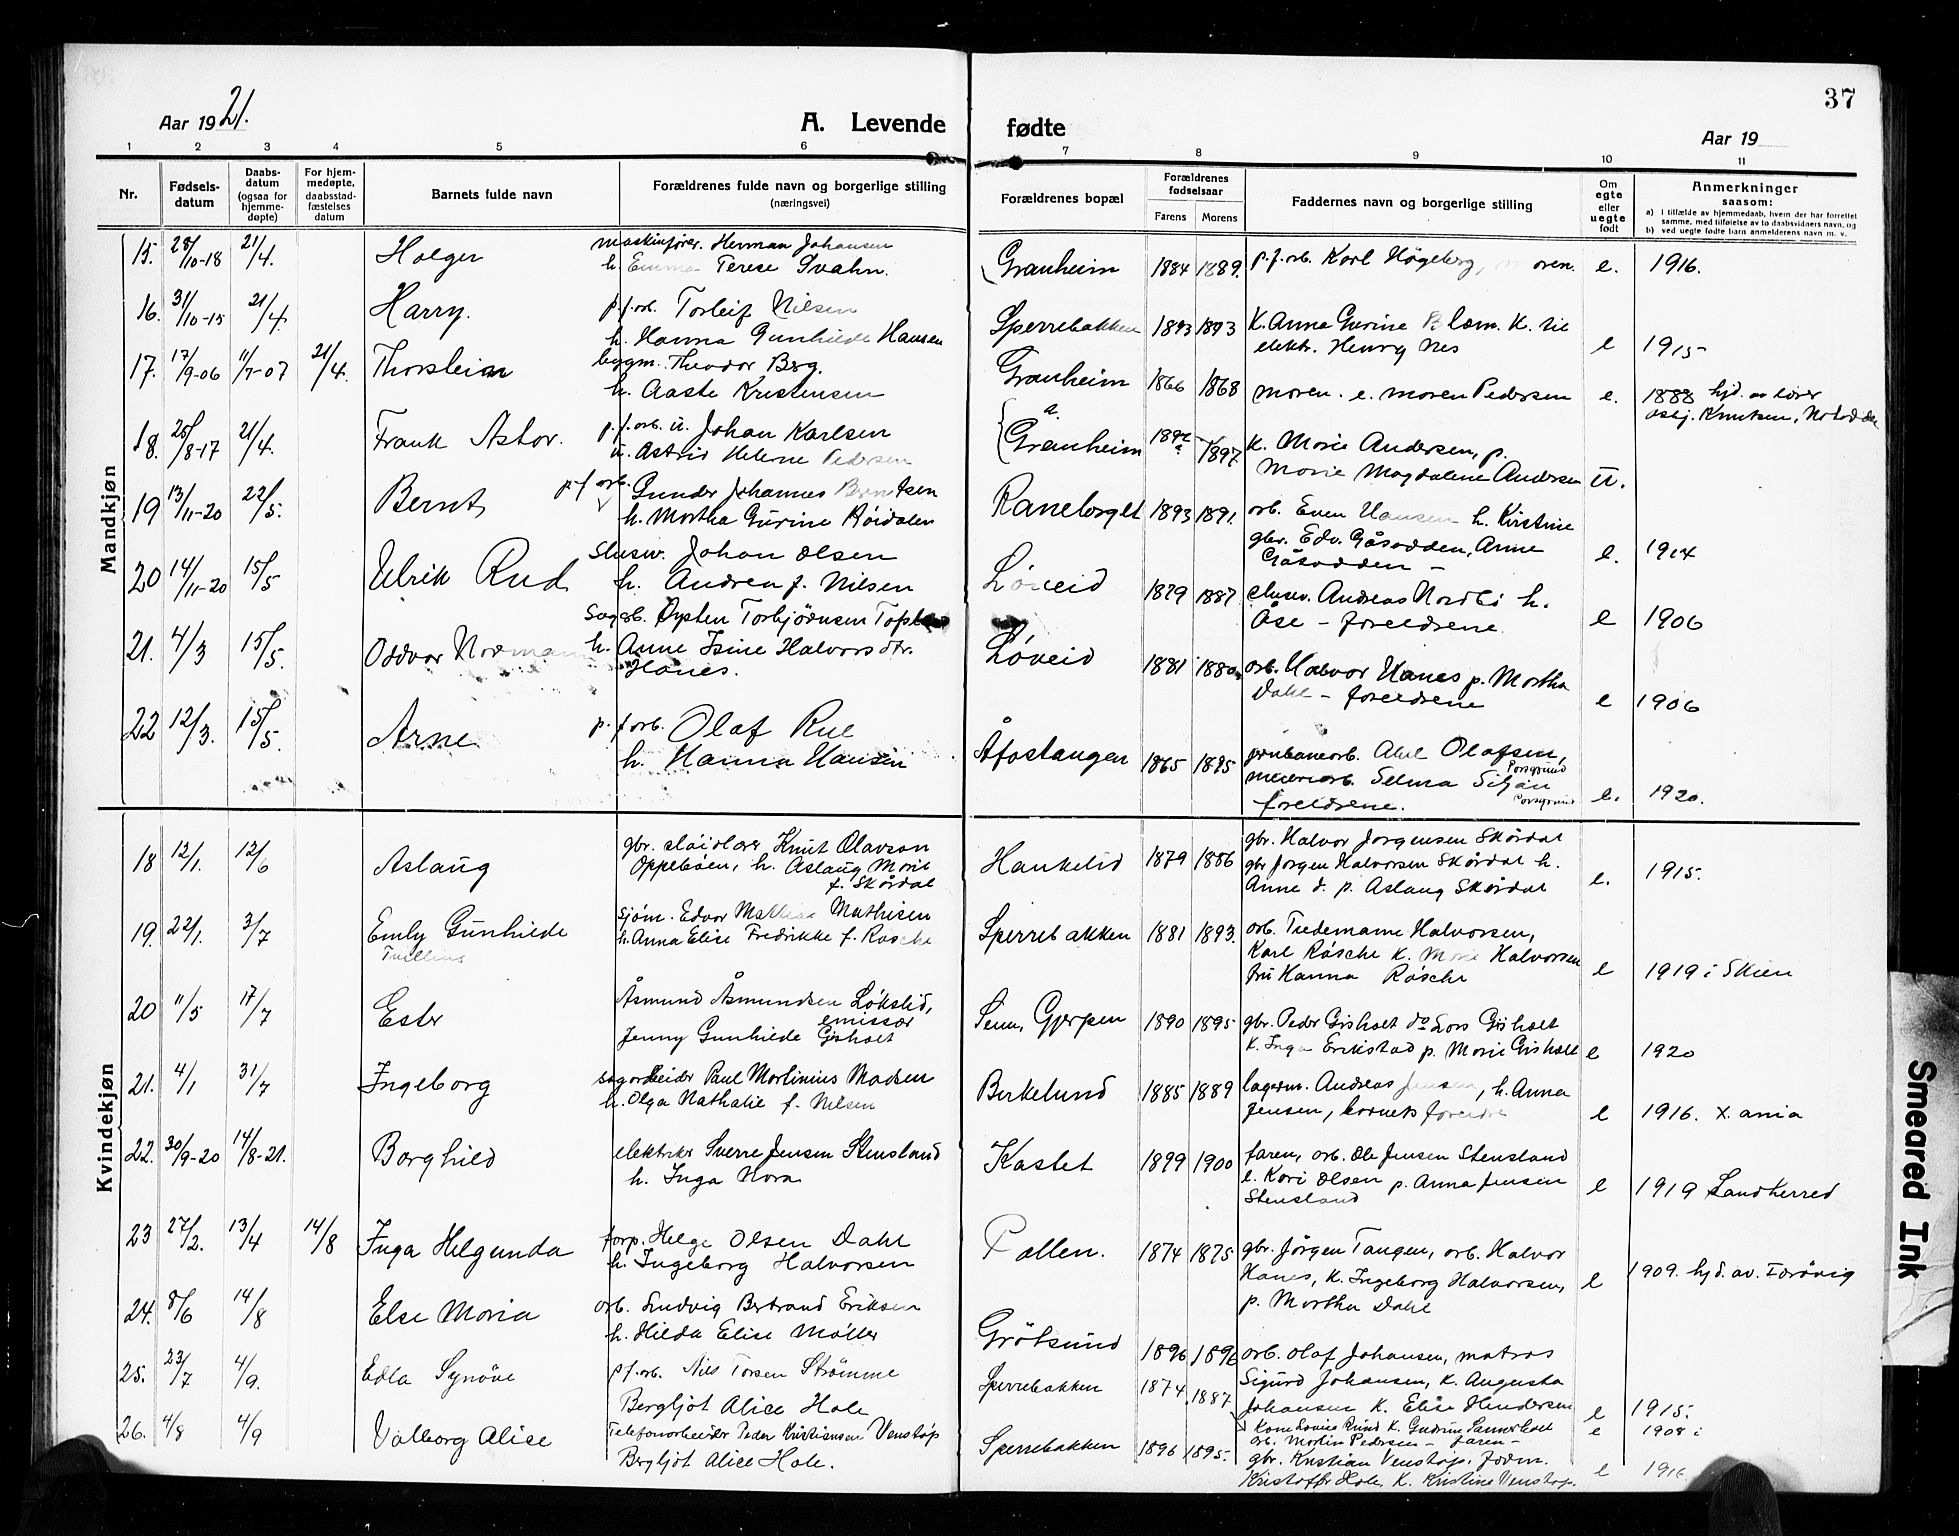 Aar 1921.
A. Levende
fødte
37
Aar 19
1 2 3 4 5 6 7 8 9 10 11
Nr.
Fødsels-
datum
Daabs-
datum
(ogsaa for
hjemme-
døpte)
For hjem-
medøpte,
daabsstad-
fæstelses
datum
Barnets fulde navn
Forældrenes fulde navn og borgerlige stilling
(næringsvei)
Forældrenes bopæl
Forældrenes
fødselsaar
Farens Morens
Faddernes navn og borgerlige stilling
Om
egte
eller
uegte
født
Anmerkninger
saasom:
a) i tilfælde av hjemmedaab, hvem der har forrettet
samme, med tilføielse av to daabsvidners navn, og
b) ved uegte fødte barn anmelderens navn m. v.
Mandkjøn
15. 28/10-18 21/4. Holger maskinfører. Herman Johansen
h. Emma Terese Svahn. Granheim 1884 1889. p.f.arb. Karl Högeberg, moren. e. 1916.
16. 31/10-15 21/4. Harry. p.f.arb. Torleif Nilsen
h. Hanna Gunhilde Hansen Sperrebakken 1893 1893 K. Anna Gurine K. til
elektr. Henry Nes e 1915
17. 17/9-06 11/7-07 21/4. Thorsleim bygm. Theodor Berg.
h. Aaste Kristensen Granheim 1866 1868 moren. e. moren Pedersen e. 1888 hjd. av lærer
Knutsen, Notodden
18. 25/8-17 21/4. Frank Astor. p.f.arb. u. Johan Karlsen
u. Astrid Helene Pedersen Granheim 1892 1897 K. Marie Andersen, p.
Marie Magdalene Andersen u.
19 13/11-20 22/5. Bernt p.f.arb. Gunder Johannes Berntsen
h. Martha Gurine Höidalen Raneborget 1893 1891. arb. Even Hansen h. Kristine
gbr. Edv. Gåsodden, Anne
Gåsodden – e. 1914
20 14/11-20 15/5 Ulrik Rud slusev. Johan Olsen
h. Andrea f. Nilsen Løveid 1879 1887 slusev. Andreas Nordbö h.
Åse – foreldrene e 1906
21. 4/3 15/5. Oddvar Norman sagarb. Öysten Torbjörnsen
h. Anne Isine Halvorsdtr.
Hanes. Løveid 1881 1880 arb. Halvor Hanes p. Martha
Dahl – foreldrene e 1906
22 12/3. 15/5. Arne p.f.arb. Olaf Rui
h. Hanna Hansen Åfostangen 1865 1895 jernbanearb. Olafsen,
Porsgrund
meieriarb. Selma Siljan
Porsgrund
foreldrene. e. 1920.
Kvindekjøn
18 12/1. 12/6 Aslaug gbr. sløidlærer Knut Olavson
Oppebøen, h. Aslaug Marie
f. Skårdal Haukelid 1879 1886 gbr. Halvor Jörgensen Skårdal
gbr Jørgen Halvorsen Skårdal h.
Anne d. p. Aslaug Skårdal e. 1915.
19. 22/1. 3/7 Emly Gunhilde
Tvilling sjøm. Edvar Mathias Mathisen
h. Anna Elise Fredrikke f. Rasche Sperrebakken 1881 1893. arb. Tiedemann Halvorsen,
Karl Råsche K. Marie Halvorsen
fru Hanna Råsche e 1919 i Skien
20 11/5 17/7 Ester Åsmund Åsmundsen Løkslid,
emissær
Jenny Gunhilde Gisholt Senn, Gjerpen 1890 1895 gbr. Peder Gisholt do Lars Gisholt
K. Inga Erikstad p. Marie Gisholt e 1920
21. 4/1 31/7 Ingeborg sagarbeider Paul Martinius Madsen
h. Olga Nathalie f. Nilsen Birkelund 1885 1889 lagerm. Andreas Jensen, h. Anna
Jensen, barnets foreldre e 1916. X.ania
22. 30/9-20 14/8-21. Borghild elektriker Sverre Jensen Stensland
h. Inga Nora Kastet 1899 1900 faren, arb. Ole Jensen Stensland
e. Kari Olsen p. Anna Jensen
Stensland e 1919 Landherred
23 27/2. 13/4 14/8 Inga Helgunda forp. Helge Olsen Dahl
h. Ingeborg Halvorsen Pollen. 1874 1875 gbr. Jörgen Tangen, arb. Halvor
Hanes, K. Ingeborg Halvorsen,
p. Martha Dahl e 1909. hjd. av. Farövig
24. 8/6 14/8 Else Maria arb. Ludvig Bertrand Eriksen
h. Hilda Elise Möller Grötsund 1896 1896 arb. Olaf Johansen, matros
Sigurd Johansen, K. Augusta
Johansen K. Elise Hendersen e 1915.
25. 23/7 4/9. Edla Synöve p.f.arb. Nils Torsen Strömme
Bergljot Alice Hole Sperrebakken 1874 1887 Kone Lovise Rund K. Gudrun
arb. Martin Pedersen – faren – e 1908 i
26. 4/8 4/9 Valborg Alise Telefonarbeider Peder Kristiansen Venstöp
Bergljot Alice Hole. Sperrebakken 1896 1895. gbr. Kristian Venstöp, jordm.
Kristoffer Hole, K. Kristine Venstöp. e 1916
Smeared Ink